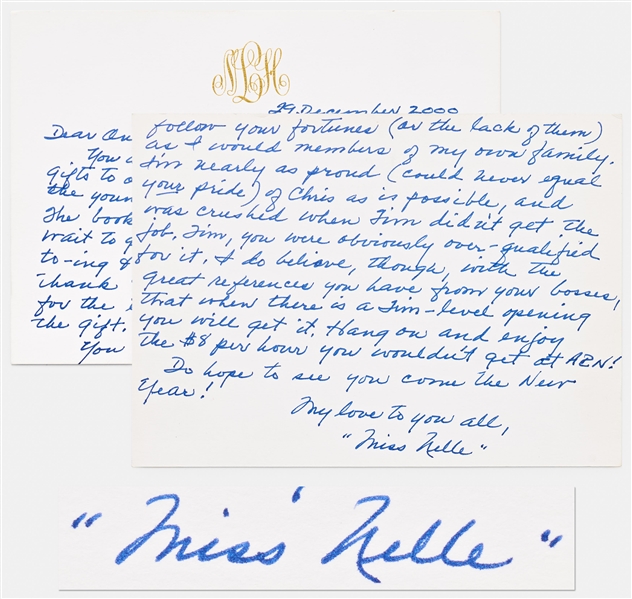 NLH
29 December 2000
Dear
You
gifts to
the
The book
wait to
to-ing
thank
for the
the gift.
You
follow your fortunes (or the lack of them)
as I would members of my own family.
I'm nearly as proud (could never equal
your pride) of Chris as is possible, and
was crushed when Jim didn't get the
job. Jim, you were obviously over-qualified
for it. I do believe, though, with the
great references you have from your bosses,
that when there is a Jim-level opening
you will get it. Hang on and enjoy
the $8 per hour you wouldn't get at ABN!
Do hope to see you come the New
Year!
My love to you all,
"Miss Nelle"
"Miss Nelle"